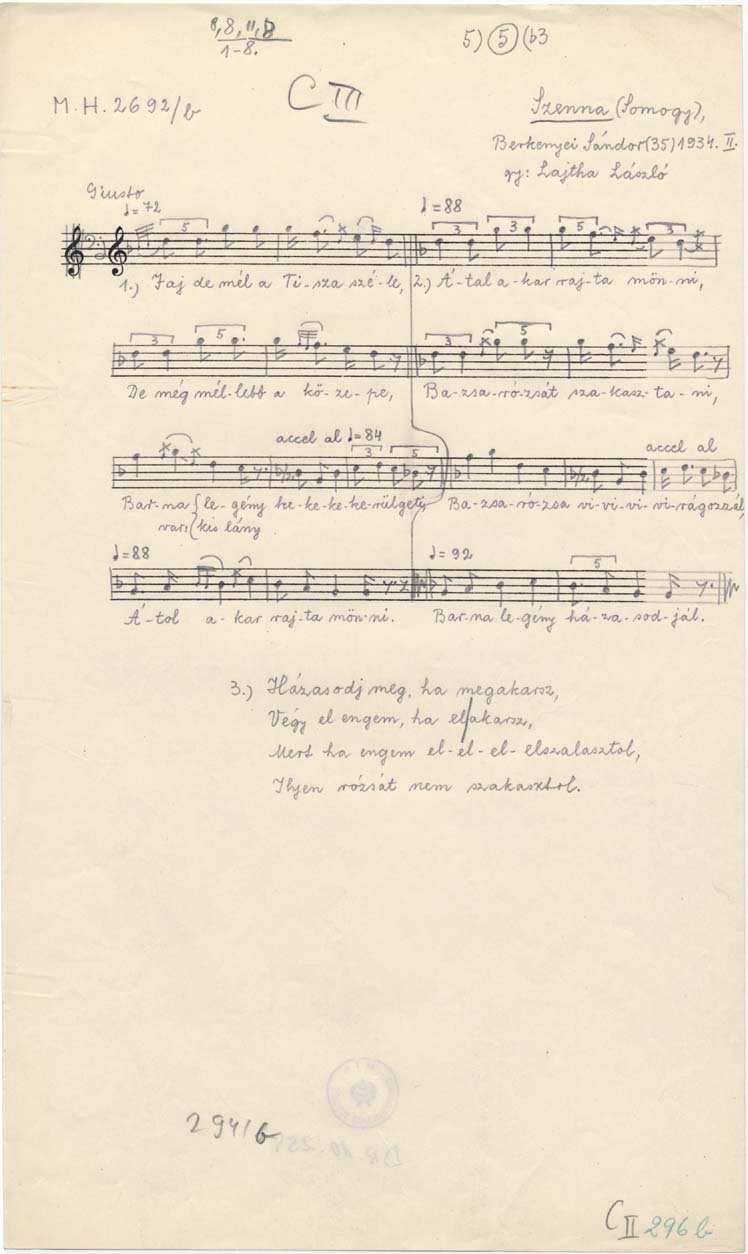 8, 8, 11, 8
1-8.
5) 5 (b3
M. H. 2692/b
C III
Szenna (Somogy),
Berkenyei Sándor (35) 1934. II.
gy: Lajtha László
Giusto
♩= 72
♩= 88
5 3 3 5 3
1.) Jaj de mél a Ti-sza szé-le, 2.) Á-tal a-kar raj-ta mön-ni,
3 5 3 5
De még mél-lebb a kö-ze-pe, Ba-zsa-ró-zsát sza-kasz-ta-ni,
accel al ♩= 84
accel al
3 5
Bar-na { le-gény ke-ke-ke-ke-rülgeti, Ba-zsa-ró-zsa vi-vi-vi-vi-rágozzál,
var: { kis lány
♩= 88
♩= 92
5
Á-tol a-kar raj-ta mön-ni. Bar-na le-gény há-za-sod-jál.
3.) Házasodj meg, ha megakarsz,
Végy el engem, ha el|akarsz,
Mert ha engem el-el-el-elszalasztol,
Ilyen rózsát nem szakasztol.
294/b
C II 296 b